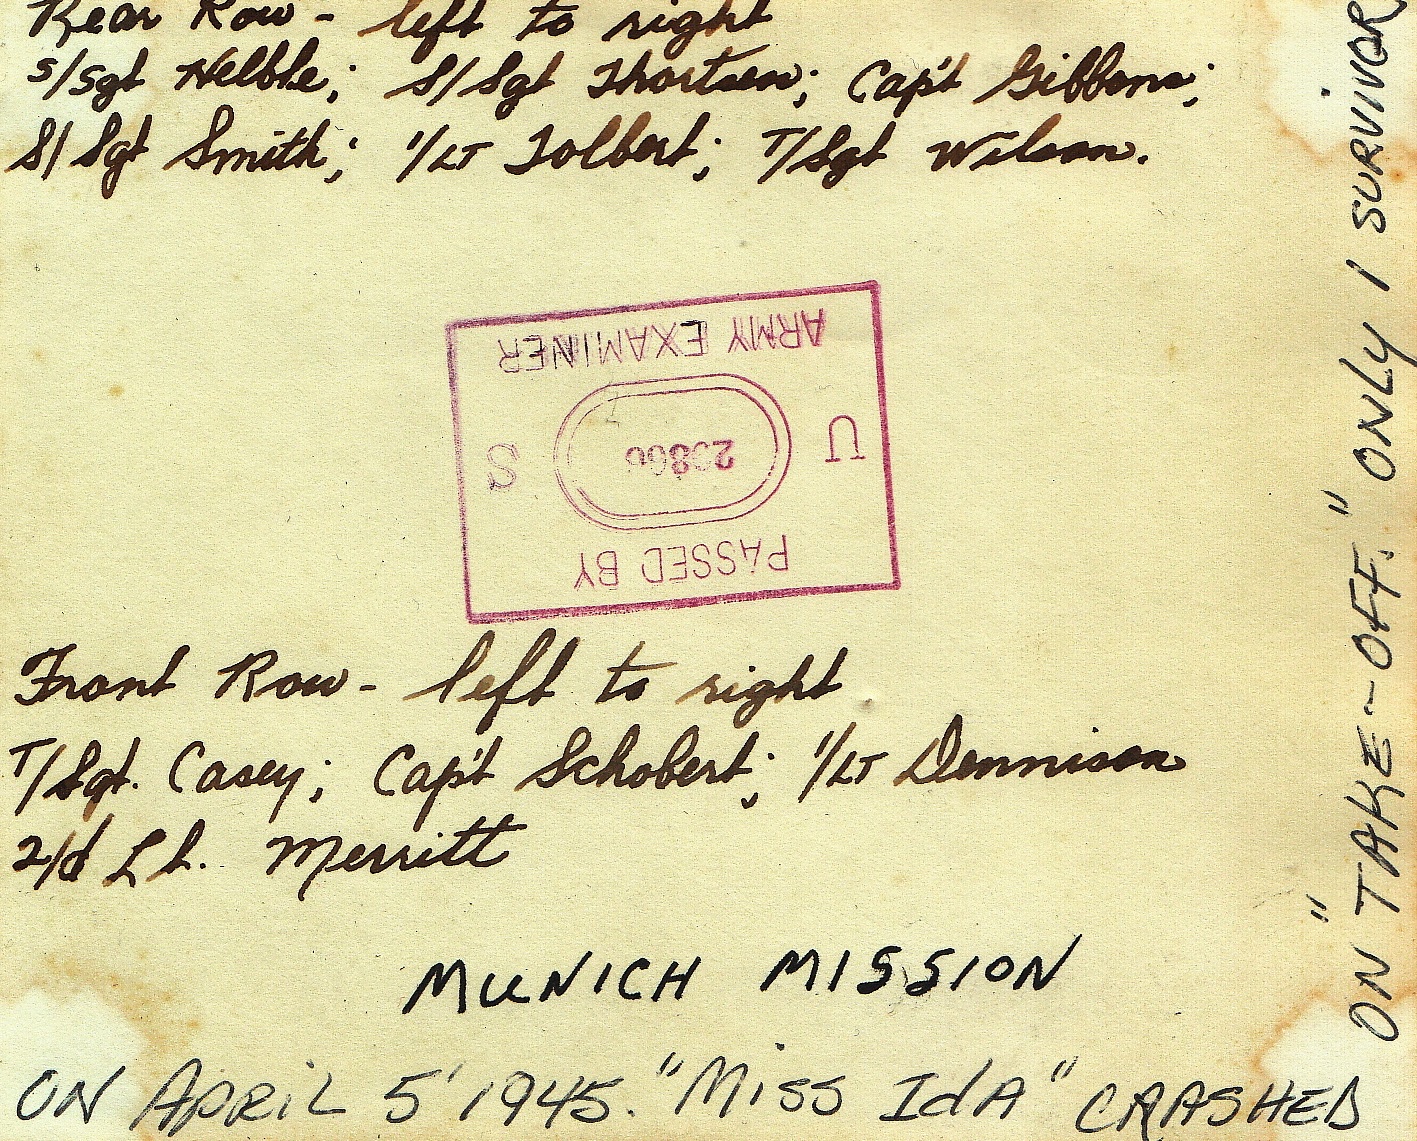 Rear Row - left to right
S/Sgt Helble; S/Sgt Thortsen; Cap't Gibbons;
S/Sgt Smith; 1/LT Tolbert; T/Sgt Wilson.
PASSED BY
U S
ARMY EXAMINER
Front Row - left to right
T/Sgt. Casey; Cap't Schobert; 1/LT Dennison
2/d Lt. Merritt
MUNICH MISSION
ON APRIL 5' 1945. "MISS IdA" CRASHED
ON "TAKE-OFF." ONLY 1 SURVIVOR